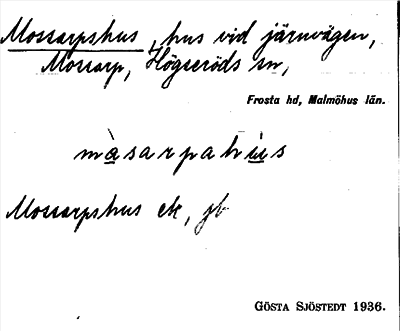 Mossarpshus, hus vid järnvägen,
Mossarp, Högseröds sn,
Frosta hd, Malmöhus län.
màsarpahùs
Mossarpshus ek, jb
GÖSTA SJÖSTEDT 1936.